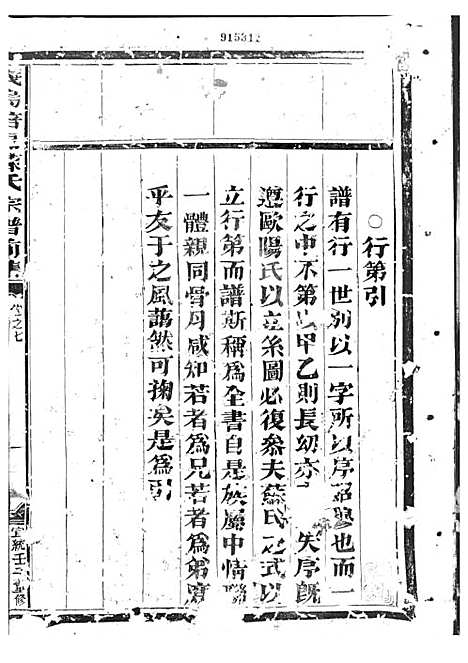 915312
○行第引
譜有行一世別以一字所以序昭穆也而一
行之中不第以甲乙則長幼亦 失序旣
遵歐陽氏以立糸圖必復叅夫蘇氏之式以
立行第而譜斯稱爲全書自是族屬中情聯
一體親同骨肉咸知若者爲兄若者爲弟
乎友于之風藹然可掬矣是爲引
義烏 孫氏宗譜前集
卷之七
一
宣統 重修